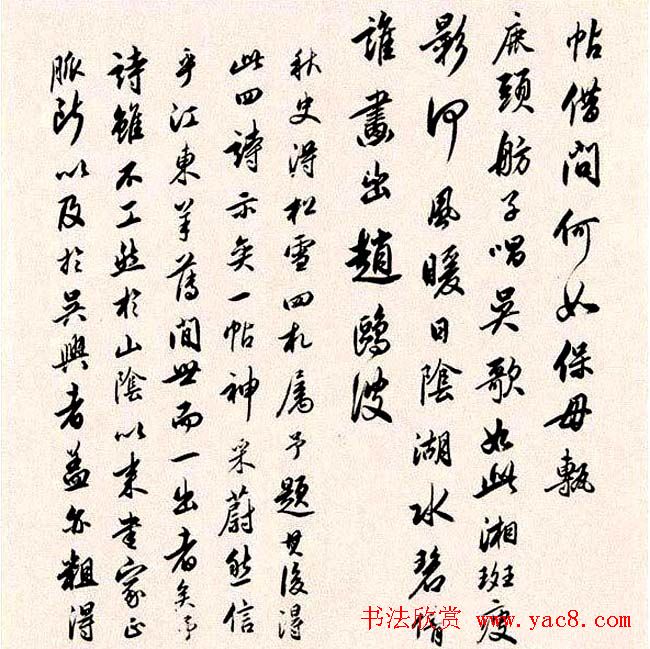 帖借問何如保母甎
鹿頭舫子唱吳歌如此湘斑瘦
影何風暖日陰湖水碧倩
誰畫出趙鷗波
秋史得松雪四札屬予題其後得
此四詩示矣一帖神采蔚然信
乎江東羊薄間世而一出者矣予
詩雖不工然於山陰以來書家正
脈所以及於吳興者蓋亦粗得
书法欣赏 www.yac8.com